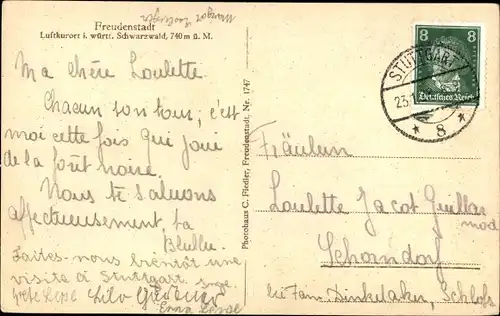 Freudenstadt
Luftkurort i. württ. Schwarzwald, 740 m ü. M.
Ma chère Loulette.
Chacun son tour, c'est
moi cette fois qui joui
de la forêt noire.
Nous te saluons
affectueusement, ta
Faites-nous bientôt une
visite à Stuttgart
Photohaus C. Fiedler, Freudenstadt, Nr. 1747
8 8
Deutsches Reich
STUTTGART
23.
* 8 *
Fräulein
Loulette Jacot Guillar
mod
Schorndorf
bei Fam. Dinkelaker, Schloß